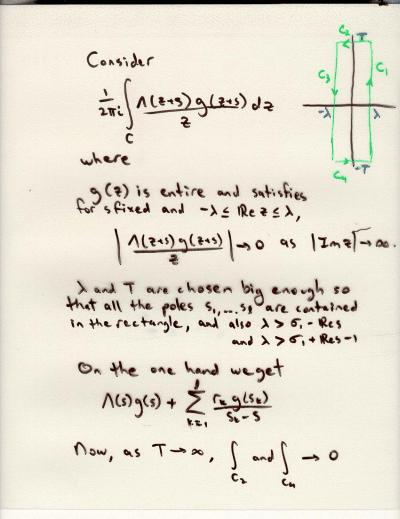 Consider
1/2πi ∫_C Λ(z+s) g(z+s)/z dz
where
g(z) is entire and satisfies
for s fixed and -λ ≤ Re z ≤ λ,
|Λ(z+s) g(z+s)/z| → 0 as |Im z| → ∞.
λ and T are chosen big enough so
that all the poles s₁,... are contained
in the rectangle, and also λ > σ₁ - Re s
and λ > σ₁ + Re s - 1
On the one hand we get
Λ(s)g(s) + Σ_{k=1} r_k g(s_k)/(s_k - s)
Now, as T → ∞, ∫_{C₂} and ∫_{C₄} → 0
C₂
T
C₃
C₁
-λ
λ
C₄
-T